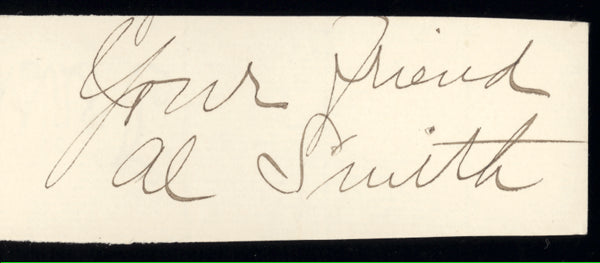 Your Friend
Al Smith